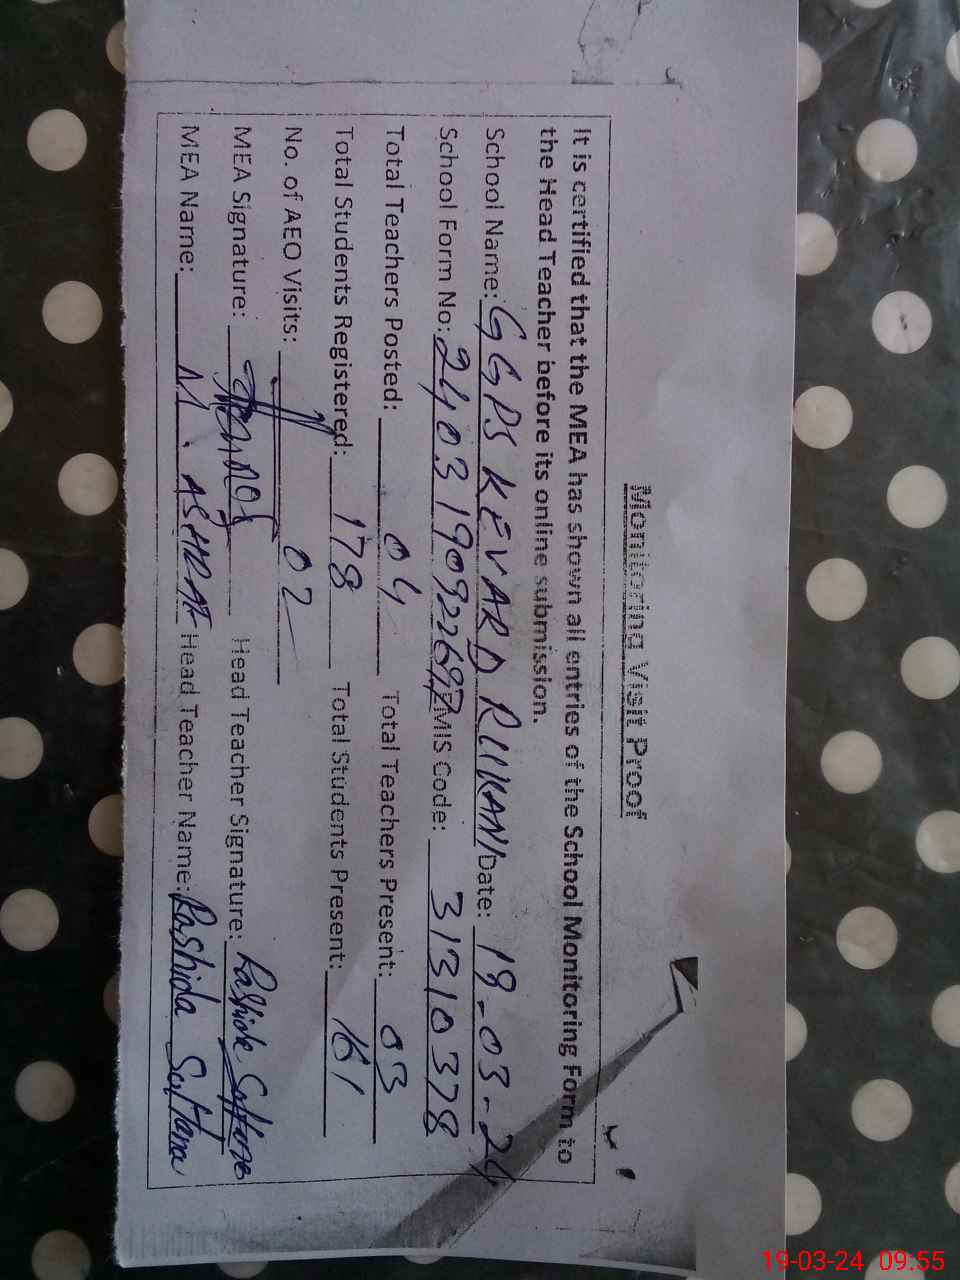 Monitoring Visit Proof
It is certified that the MEA has shown all entries of the School Monitoring Form to
the Head Teacher before its online submission.
School Name: GGPS KEVARD RUKAN Date: 19-03-24
School Form No: MIS Code: 31310378
Total Teachers Posted: 04 Total Teachers Present: 03
Total Students Registered: 178 Total Students Present: 161
No. of AEO Visits: 02
MEA Signature: Head Teacher Signature: Rashida Sultana
MEA Name: M. ASHRAF Head Teacher Name: Rashida Sultana
19-03-24 09:55